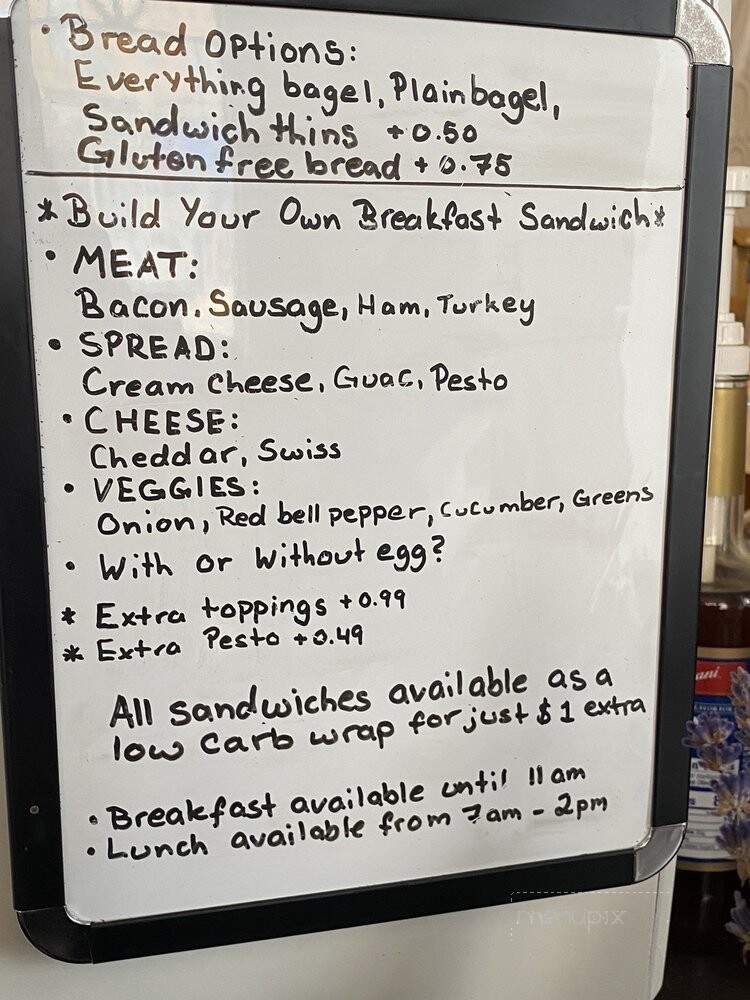 • Bread Options:
Everything bagel, Plain bagel,
Sandwich thins +0.50
Gluten free bread +0.75
* Build Your Own Breakfast Sandwich *
• MEAT:
Bacon, Sausage, Ham, Turkey
• SPREAD:
Cream cheese, Guac, Pesto
• CHEESE:
Cheddar, Swiss
• VEGGIES:
Onion, Red bell pepper, Cucumber, Greens
• With or Without egg?
* Extra toppings +0.99
* Extra Pesto +0.49
All sandwiches available as a
low carb wrap for just $1 extra
• Breakfast available until 11am
• Lunch available from 7am - 2pm
menupix
ani